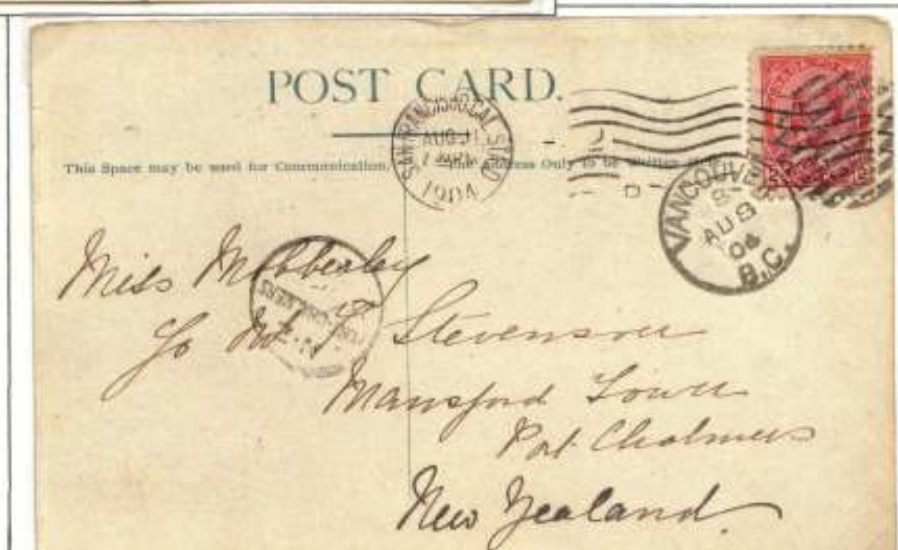 POST CARD.
This Space may be used for Communication.
Address Only to be
SAN FRANCISCO, CAL. STA. D
AUG 11
1904
VANCOUVER
AUG 8
04
B.C.
Miss Mobberley
c/o Mr T Stevenson
Mansford Town
Port Chalmers
New Zealand.